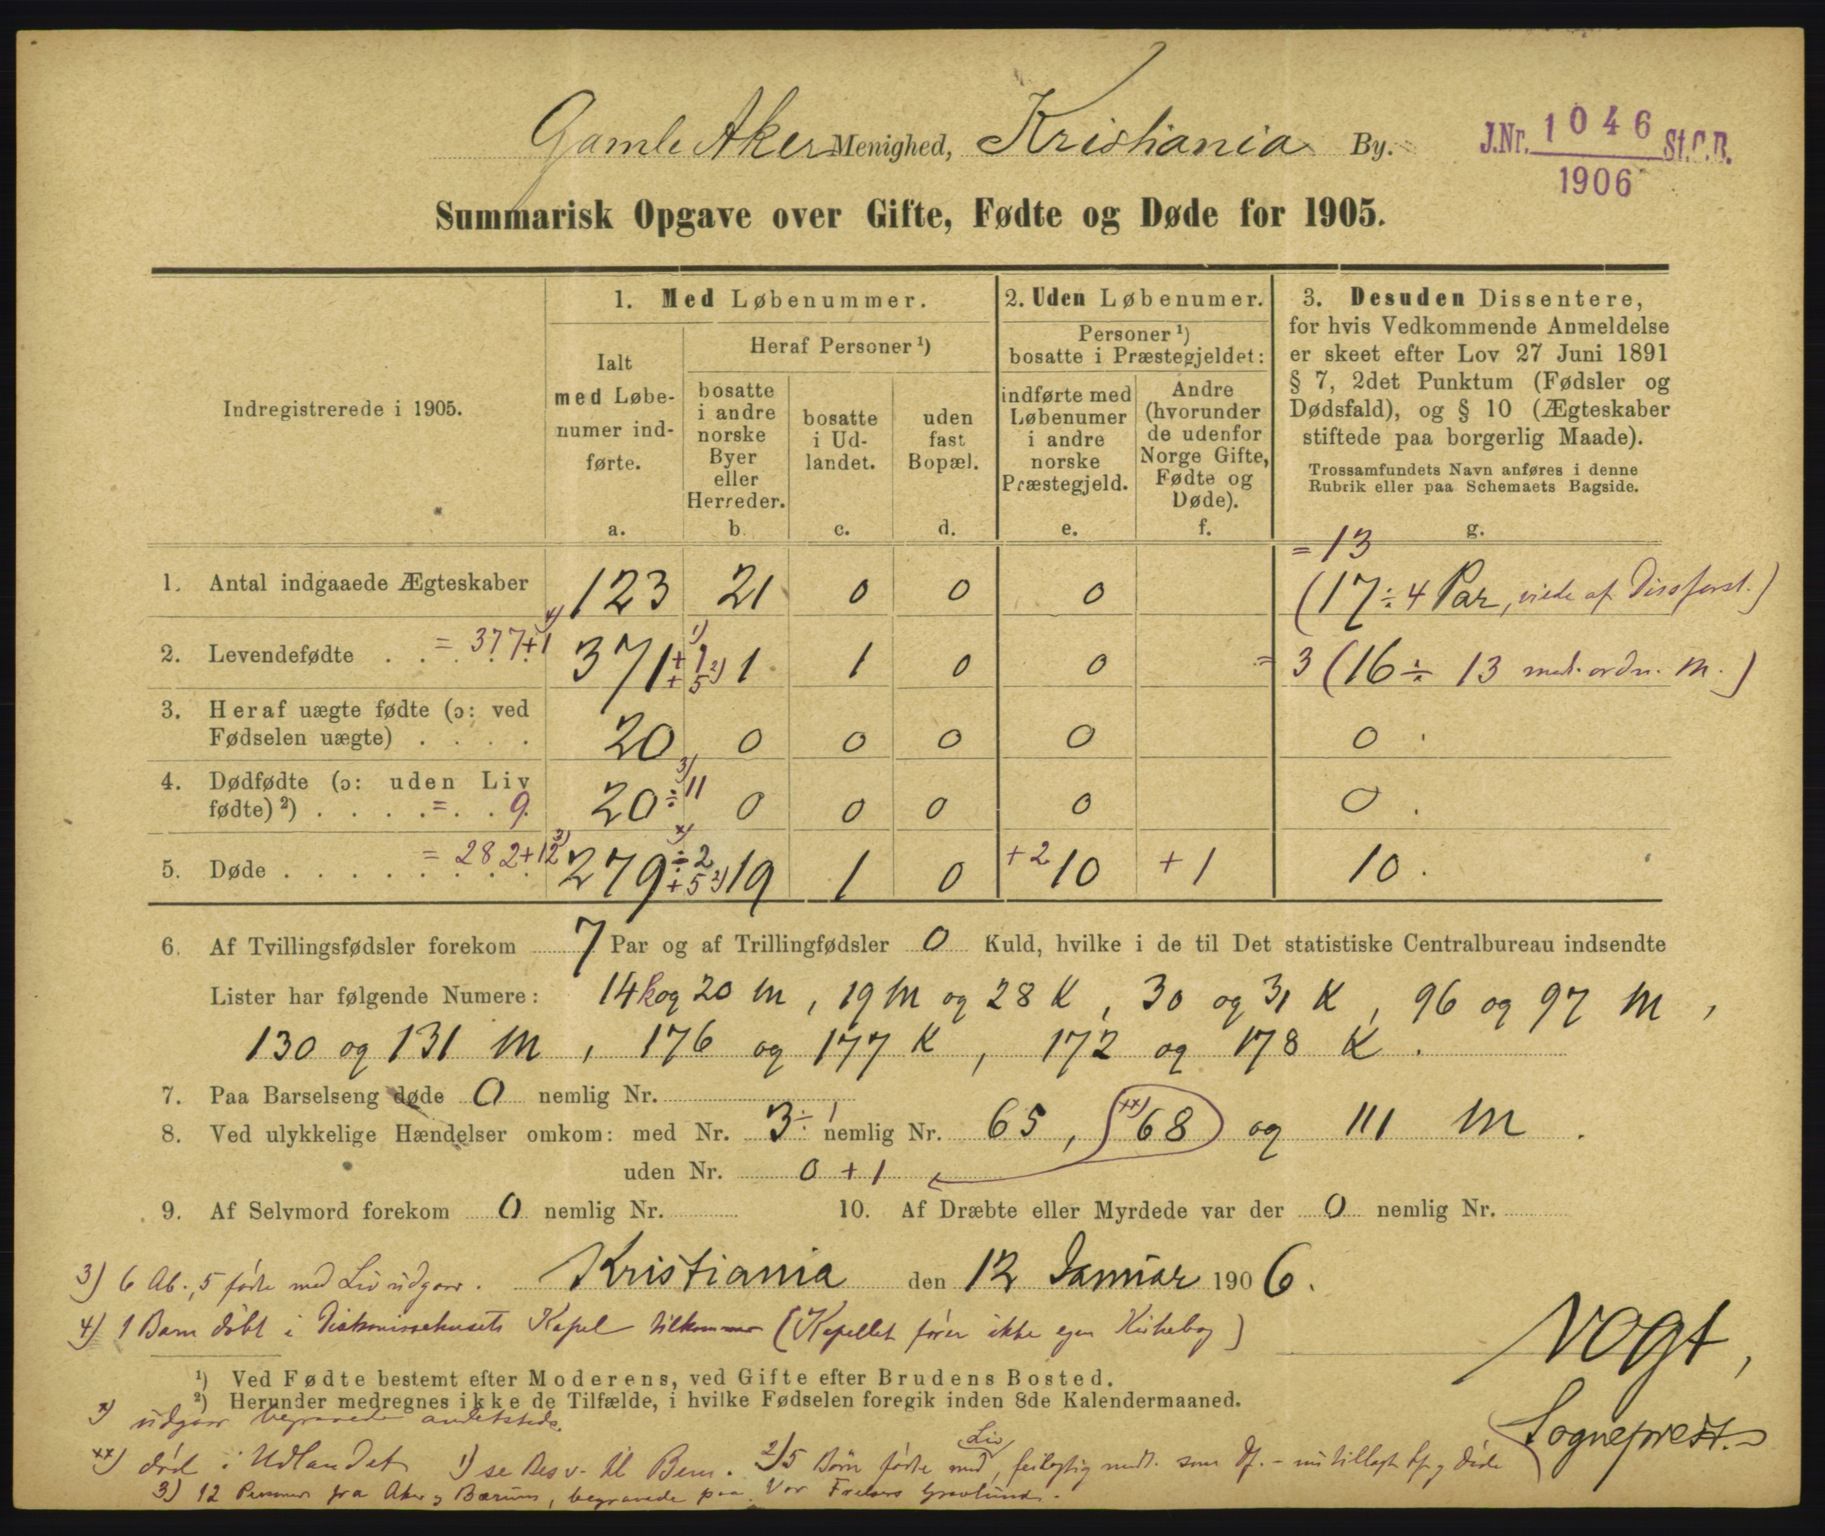 Gamle Aker Menighed, Kristiania By.
J.Nr. 1046 St.C.B.
1906
Summarisk Opgave over Gifte, Fødte og Døde for 1905.
Indregistrerede i 1905.
1. Med Løbenummer.
Ialt med Løbe-
numer ind-
førte.
a.
Heraf Personer ¹)
bosatte
i andre
norske
Byer
eller
Herreder.
b.
bosatte
i Ud-
landet.
c.
uden
fast
Bopæl.
d.
2. Uden Løbenumer.
Personer ¹)
bosatte i Præstegjeldet:
indførte med
Løbenumer
i andre
norske
Præstegjeld.
e.
Andre
(hvorunder
de udenfor
Norge Gifte,
Fødte og
Døde).
f.
3. Desuden Dissentere,
for hvis Vedkommende Anmeldelse
er skeet efter Lov 27 Juni 1891
§ 7, 2det Punktum (Fødsler og
Dødsfald), og § 10 (Ægteskaber
stiftede paa borgerlig Maade).
Trossamfundets Navn anføres i denne
Rubrik eller paa Schemaets Bagside.
g.
= 13
1. Antal indgaaede Ægteskaber 123 21 0 0 0 (17 ÷ 4 Par, viede af Dissforst.)
2. Levendefødte = 377+1 4) 371 + 1 1) + 5 2) 1 1 0 0 = 3 (16 ÷ 13 med. ordn. M.)
3. Heraf uægte fødte (ɔ: ved
Fødselen uægte) 20 0 0 0 0 0
4. Dødfødte (ɔ: uden Liv
fødte) ²) = 9 20 ÷ 11 3) 0 0 0 0 0
5. Døde = 282+12 3) 279 ÷ 2 x) + 5 2) 19 1 0 +2 10 +1 10
6. Af Tvillingsfødsler forekom 7 Par og af Trillingfødsler 0 Kuld, hvilke i de til Det statistiske Centralbureau indsendte
Lister har følgende Numere: 14 k og 20 M, 19 M og 28 K, 30 og 31 K, 96 og 97 M,
130 og 131 M, 176 og 177 K, 172 og 178 K.
7. Paa Barselseng døde 0 nemlig Nr.
8. Ved ulykkelige Hændelser omkom: med Nr. 3 ÷ 1 nemlig Nr. 65, xx) 68 og 111 M.
uden Nr. 0 + 1
9. Af Selvmord forekom 0 nemlig Nr. 10. Af Dræbte eller Myrdede var der 0 nemlig Nr.
3) 6 Ab., 5 fødte med Liv udgaar. Kristiania den 12 Januar 1906.
4) 1 Barn døbt i Diakonissehusets Kapel tilkommer (Kapellet fører ikke egen Kirkebog)
Vogt,
¹) Ved Fødte bestemt efter Moderens, ved Gifte efter Brudens Bosted.
²) Herunder medregnes ikke de Tilfælde, i hvilke Fødselen foregik inden 8de Kalendermaaned.
Sogneprest.
x) udgaar begravede andetsteds
xx) død i Udlandet 1) se Besv. til Bem. 2) 5 Børn fødte med Liv, feilagtig medt. som Df. - nu tillagt Lf. og Døde
3) 12 Personer fra Aker og Bærum, begravede paa Vor Frelsers Gravlund.